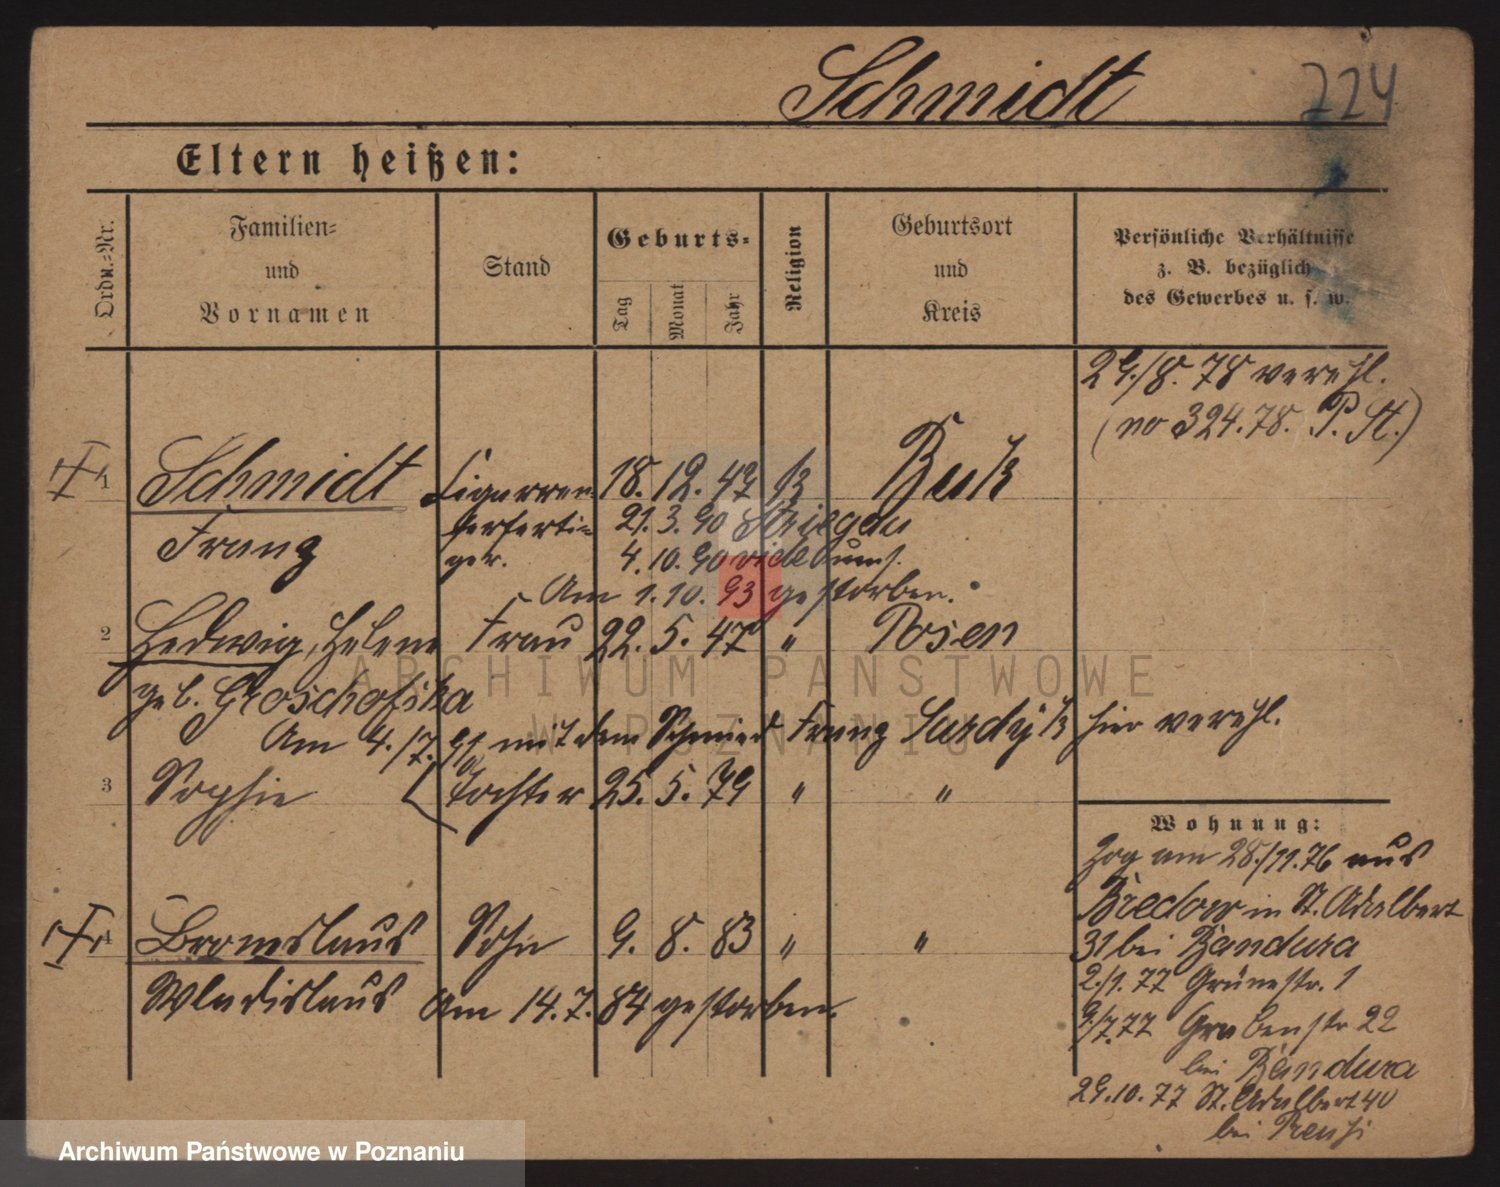 Schmidt 224
Eltern heißen:
Ordn.-Nr.
Familien-
und
Vornamen
Stand
Geburts-
Tag
Monat
Jahr
Religion
Geburtsort
und
Kreis
Persönliche Verhältnisse
z. B. bezüglich
des Gewerbes u. s. w.
29./8. 78 verehl.
(no 324.78. P. St.)
1 Schmidt Cigarren- 18. 12. 49 k Buk
Franz verferti-
ger.
21. 3. 90 Striegau
4. 10. 90
Am 1. 10. 93 gestorben.
2 Hedwig, Helene Frau 22. 5. 47 " Posen
geb. Groschofska
Am 4./7. mit dem Schmied Franz hier verehl.
3 Sophie Tochter 25. 5. 79 " "
Wohnung:
Zog am 28./11.76 aus
Bredow in St. Adalbert
31 bei Bandura
2./1. 77 Grünestr. 1
9./7.77 Grabenstr 22
bei Bandura
29.10. 77 St. Adalbert 40
bei
4 Bronislaus Sohn 9. 8. 83 " "
Wladislaus Am 14. 7. 84 gestorben.
ARCHIWUM PAŃSTWOWE
W POZNANIU
Archiwum Państwowe w Poznaniu